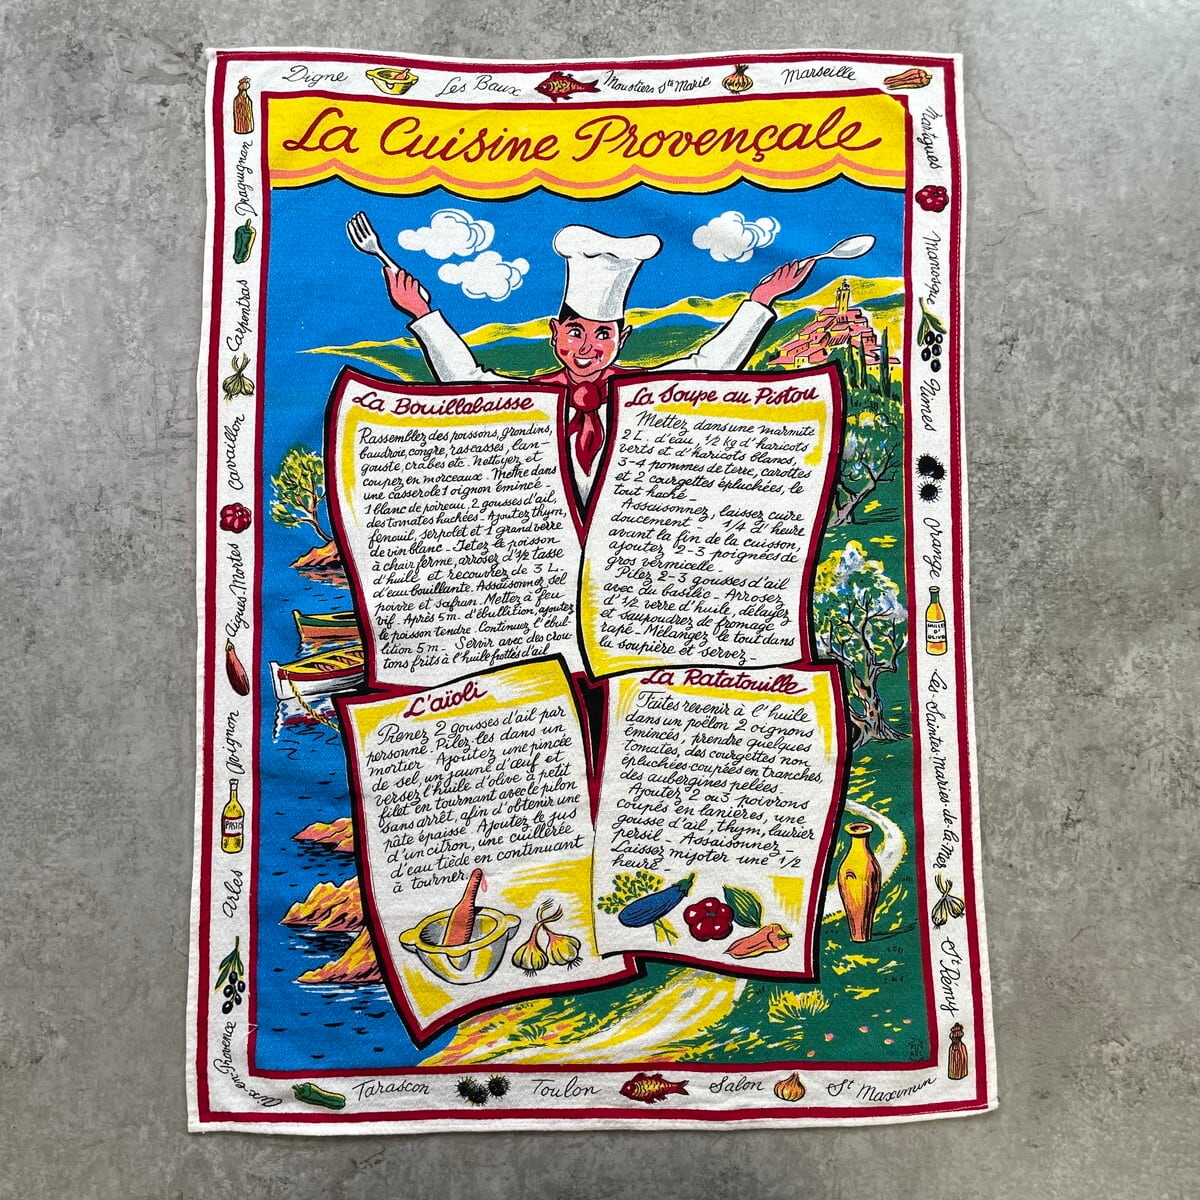 Digne
Les Baux
Moustiers Ste Marie
Marseille
La Cuisine Provençale
Martigues
Manosque
Nimes
Orange
HUILE D'OLIVE
Les-Saintes Maries-de-la-Mer
St Rémy
Draguignan
Carpentras
Cavaillon
Aigues-Mortes
Avignon
PASTIS
Arles
Aix-en-Provence
La Bouillabaisse
Rassemblez des poissons, grondins,
baudroie, congre, rascasses, lan-
gouste, crabes etc. Nettoyez et
coupez en morceaux. Mettre dans
une casserole 1 oignon émincé -
1 blanc de poireau, 2 gousses d'ail,
des tomates hachées - Ajoutez thym,
fenouil, serpolet et 1 grand verre
de vin blanc - Jetez le poisson
à chair ferme, arrosez d'1/2 tasse
d'huile et recouvrez de 3 L.
d'eau bouillante. Assaisonnez sel
poivre et safran. Mettez à feu
vif. Après 5 m. d'ébullition, ajoutez
le poisson tendre. Continuez l'ébul-
lition 5 m - Servir avec des croû-
tons frits à l'huile frottés d'ail
La Soupe au Pistou
Mettez dans une marmite
2 L. d'eau, 1/2 kg d'haricots
verts et d'haricots blancs,
3-4 pommes de terre, carottes
et 2 courgettes épluchées, le
tout haché -
Assaisonnez, laissez cuire
doucement - 1/4 d'heure
avant la fin de la cuisson,
ajoutez 2-3 poignées de
gros vermicelle -
Pilez 2-3 gousses d'ail
avec du basilic - Arrosez
d'1/2 verre d'huile, délayez
et saupoudrez de fromage
rapé - Mélangez le tout dans
la soupière et servez -
L'aïoli
Prenez 2 gousses d'ail par
personne. Pilez-les dans un
mortier. Ajoutez une pincée
de sel, un jaune d'œuf et
versez l'huile d'olive à petit
filet en tournant avec le pilon
sans arrêt, afin d'obtenir une
pâte épaisse. Ajoutez le jus
d'un citron, une cuillérée
d'eau tiède en continuant
à tourner.
La Ratatouille
Faites revenir à l'huile
dans un poêlon 2 oignons
émincés, prendre quelques
tomates, des courgettes non
épluchées coupées en tranches,
des aubergines pelées.
Ajoutez 2 ou 3 poivrons
coupés en lanières, une
gousse d'ail, thym, laurier
persil - Assaisonnez -
Laissez mijoter une 1/2
heure -
Tarascon
Toulon
Salon
St Maximin